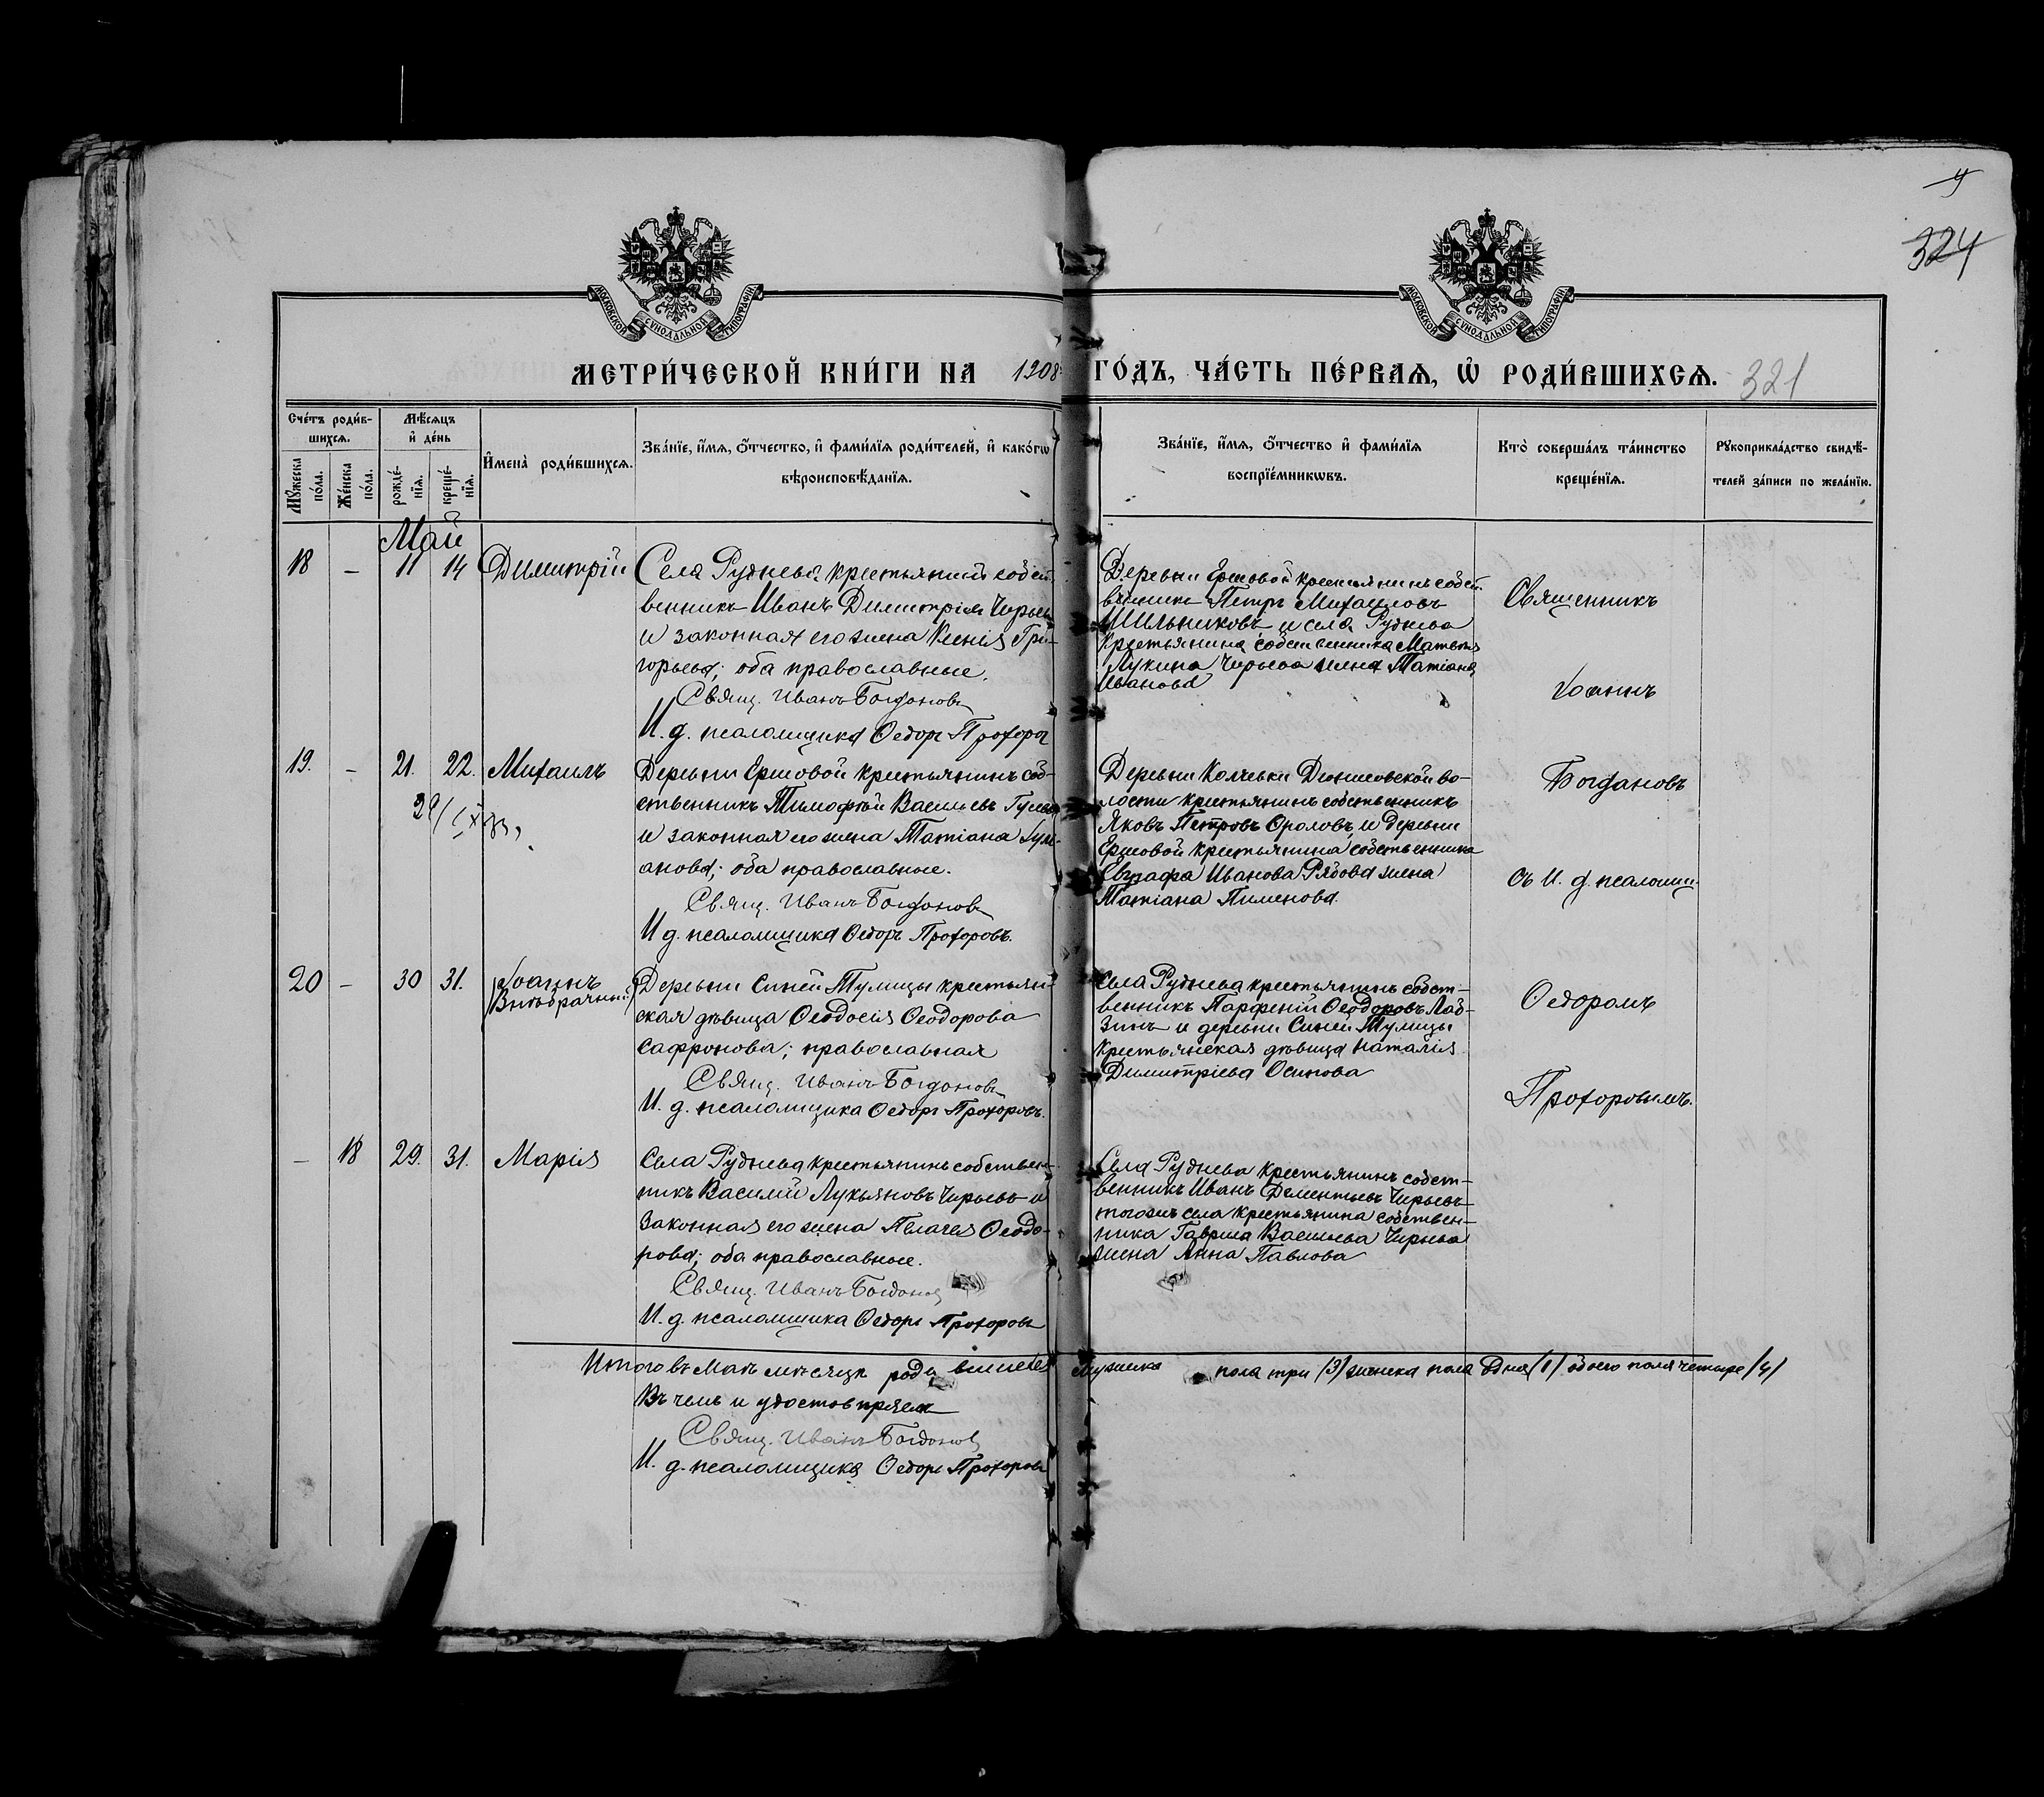 4
324
МОСКОВСКОЙ СѴНОДАЛЬНОЙ ТИПОГРАФІИ
МОСКОВСКОЙ СѴНОДАЛЬНОЙ ТИПОГРАФІИ
МЕТРИ́ЧЕСКОЙ КНИ́ГИ НА 1908 ГО́ДЪ, ЧА́СТЬ ПЕ́РВАѦ, Ѡ҆ РОДИ́ВШИХСѦ. 321
Сче́тъ роди́в-
шихсѧ.
Мѣ́сѧцъ
и҆ де́нь
Мꙋ́жеска по́ла.
Же́нска по́ла.
рожде́-
нїѧ.
креще́-
нїѧ.
И҆мена̀ роди́вшихсѧ.
Зва́нїе, и҆́мѧ, ѻ҆́тчество, и҆ фами́лїѧ роди́телей, и҆ како́гѡ
вѣроисповѣ́данїѧ.
Зва́нїе, и҆́мѧ, ѻ҆́тчество и҆ фами́лїѧ
воспрїе́мникѡвъ.
Кто̀ соверша́лъ та́инство
креще́нїѧ.
Рꙋкоприкла́дство свидѣ́-
телей за́писи по жела́нїю.
Май
18 – 11 14 Димитрій
Села Руднева крестьянинъ собст-
венникъ Иванъ Димитріев Чирьев
и законная его жена Ксенія Гри-
горьева; оба православные.
Свящ. Иванъ Богдановъ
И. д. псаломщика Ѳедоръ Прохоров
Деревни Ершовой крестьянинъ собст-
венникъ Петръ Михаиловъ
Мильниковъ и села Руднева
крестьянина собственника Матвея
Лукина Чирьева жена Татіана
Иванова
Священникъ
Іоаннъ
19. – 21. 22. Михаилъ
Деревни Ершовой крестьянинъ соб-
ственникъ Тимофей Васильевъ
и законная его жена Татіана
анова; оба православные.
Свящ. Иванъ Богдановъ
И д. псаломщика Ѳедоръ Прохоровъ.
Деревни Колчевки во-
лости крестьянинъ собственникъ
Яковъ Петровъ Фроловъ, и деревни
Ершовой крестьянина собственника
Евграфа Иванова Рябова жена
Татіана Пименова.
Богдановъ
съ И. д. псаломщ.
20 – 30 31. Іоаннъ
(Внѣбрачный)
Деревни Синей Тулицы крестьян-
ская дѣвица Ѳеодосія Ѳеодорова
Сафронова; православная
Свящ. Иванъ Богдановъ
И. д. псаломщика Ѳедоръ Прохоровъ.
Села Руднева крестьянинъ собст-
венникъ Парфеній Ѳеодоровъ
и деревни Синей Тулицы
крестьянская дѣвица Наталія
Димитріева Осипова
Ѳедоромъ
Прохоровымъ.
– 18 29. 31. Марія
Села Руднева крестьянинъ собствен-
никъ Василій Лукьяновъ Чирьевъ и
законная его жена Пелагея Ѳеодо-
рова; оба православные.
Свящ. Иванъ Богданов
И. д. псаломщика Ѳедоръ Прохоровъ
Села Руднева крестьянинъ собст-
венникъ Иванъ Дементьевъ Чирьевъ
тогожъ села крестьянина собствен-
ника Гавриила Васильева Чирьева
жена Анна Павлова
Итого въ Маѣ мѣсяцѣ родившихся Мужска пола три (3) женска пола одна (1) обоего пола четыре (4)
Въ чемъ и удостовѣряемъ
Свящ. Иванъ Богданов
И. д. псаломщика Ѳедоръ Прохоровъ